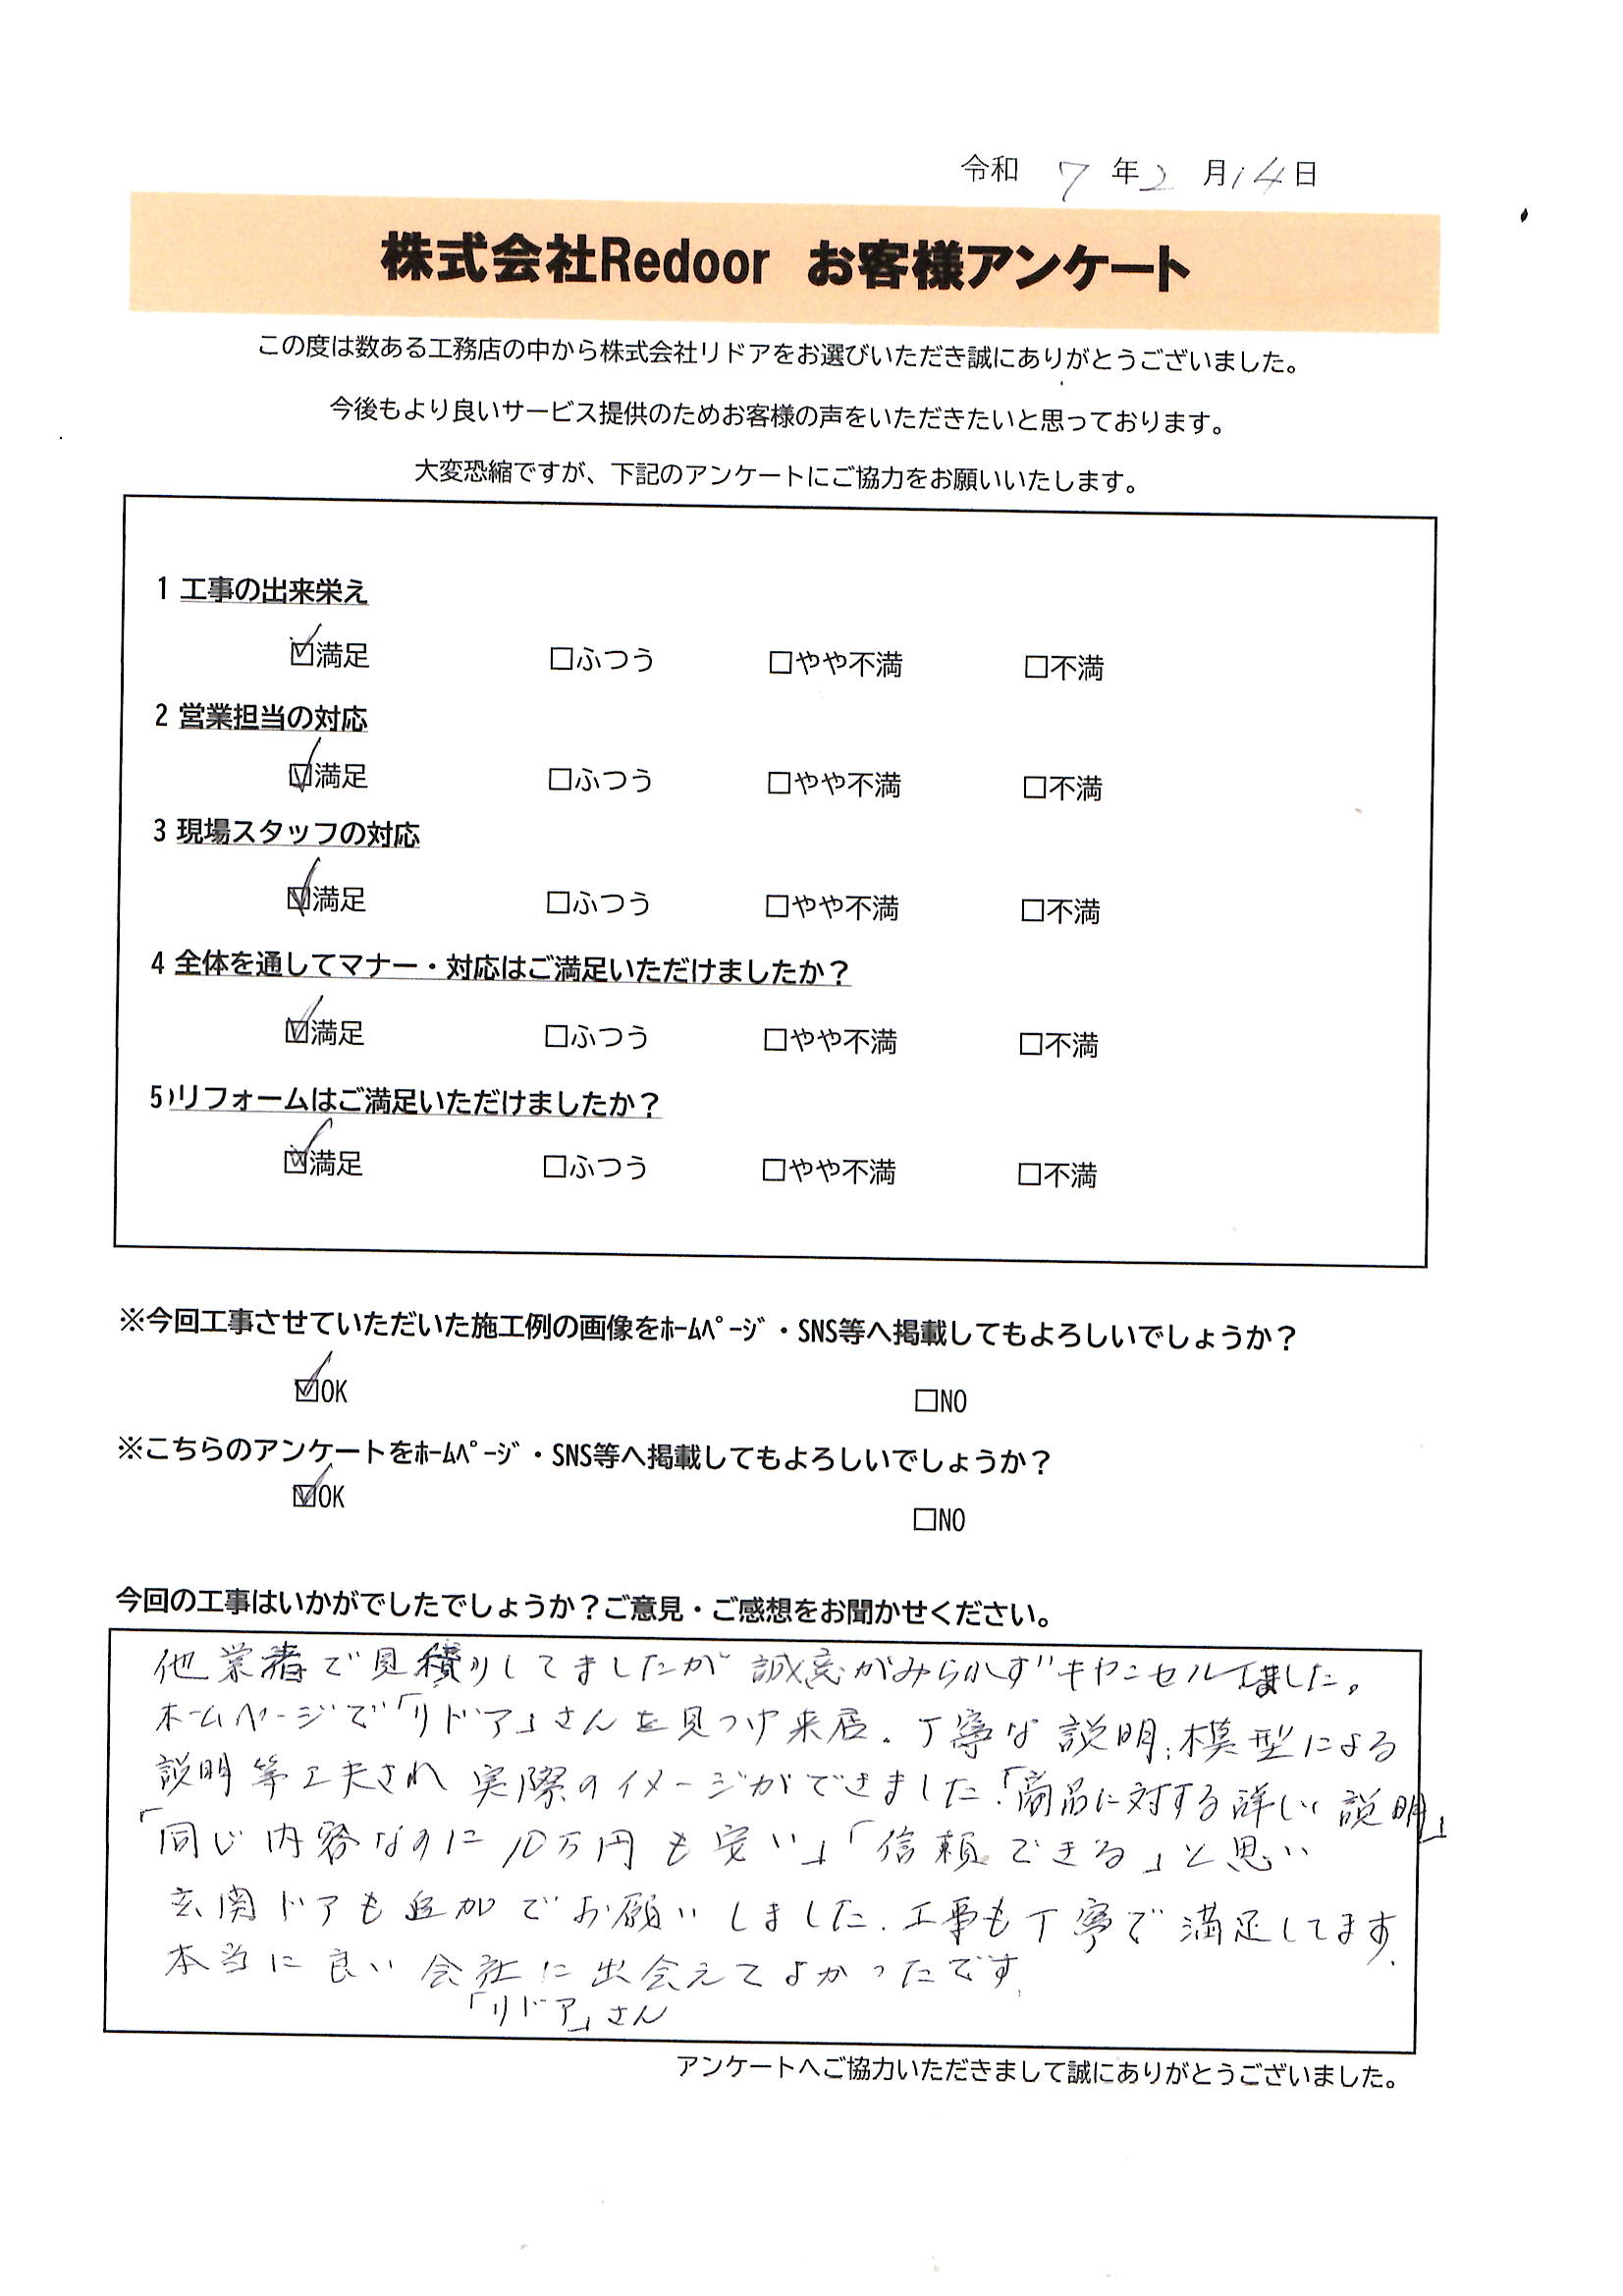 令和 7 年 2 月 14 日
株式会社Redoor お客様アンケート
この度は数ある工務店の中から株式会社リドアをお選びいただき誠にありがとうございました。
今後もより良いサービス提供のためお客様の声をいただきたいと思っております。
大変恐縮ですが、下記のアンケートにご協力をお願いいたします。
1 工事の出来栄え
☑満足 □ふつう □やや不満 □不満
2 営業担当の対応
☑満足 □ふつう □やや不満 □不満
3 現場スタッフの対応
☑満足 □ふつう □やや不満 □不満
4 全体を通してマナー・対応はご満足いただけましたか？
☑満足 □ふつう □やや不満 □不満
5)リフォームはご満足いただけましたか？
☑満足 □ふつう □やや不満 □不満
※今回工事させていただいた施工例の画像をﾎｰﾑﾍﾟｰｼﾞ・SNS等へ掲載してもよろしいでしょうか？
☑OK □NO
※こちらのアンケートをﾎｰﾑﾍﾟｰｼﾞ・SNS等へ掲載してもよろしいでしょうか？
☑OK □NO
今回の工事はいかがでしたでしょうか？ご意見・ご感想をお聞かせください。
他業者で見積りしてましたが 誠意がみられず キャンセル ました。
ホームページで「リドア」さんを見つけ来店。丁寧な説明、模型による
説明等工夫され 実際のイメージができました。「商品に対する詳しい説明」
「同じ内容なのに10万円も安い」「信頼できる」と思い
玄関ドアも追加でお願いしました。工事も丁寧で満足してます。
本当に良い会社に出会えてよかったです。
「リドア」さん
アンケートへご協力いただきまして誠にありがとうございました。